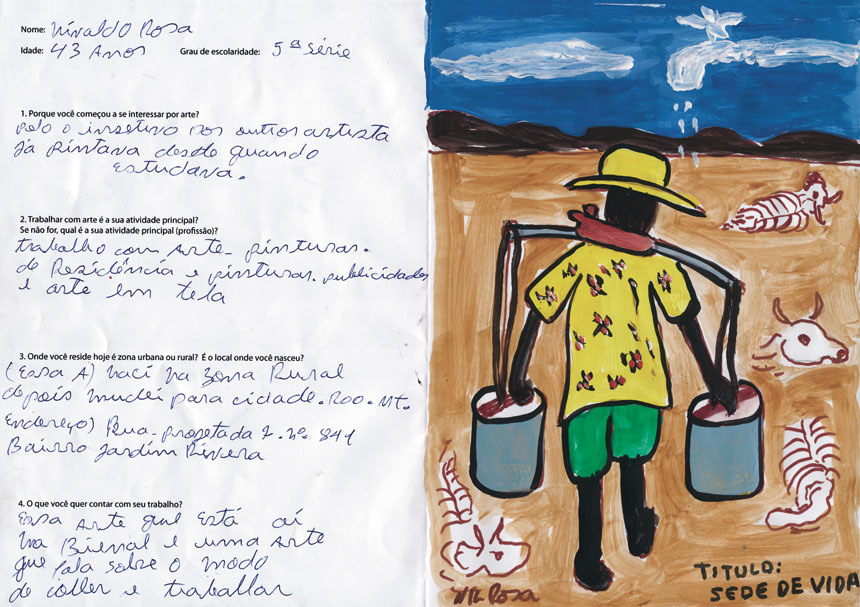 Nome: Nivaldo Rosa
Idade: 43 Anos Grau de escolaridade: 5ª série
1. Porque você começou a se interessar por arte?
pelo o insetivo dos outros artista
já pintava desde quando
estudava.
2. Trabalhar com arte é a sua atividade principal?
Se não for, qual é a sua atividade principal (profissão)?
trabalho com Arte - pinturas.
de Residência e pinturas. publicidades
e arte em tela
3. Onde você reside hoje é zona urbana ou rural? É o local onde você nasceu?
(Essa A) naci na zona Rural
depois mudei para cidade. Roo. Mt.
Endereço) Rua - projetada 7. nº. 841
Bairro Jardim Rivera
4. O que você quer contar com seu trabalho?
Essa Arte qual Está aí
na Bienal e uma Arte
que fala sobre o modo
de coller e traballar
NR Rosa
TITULO:
SEDE DE VIDA